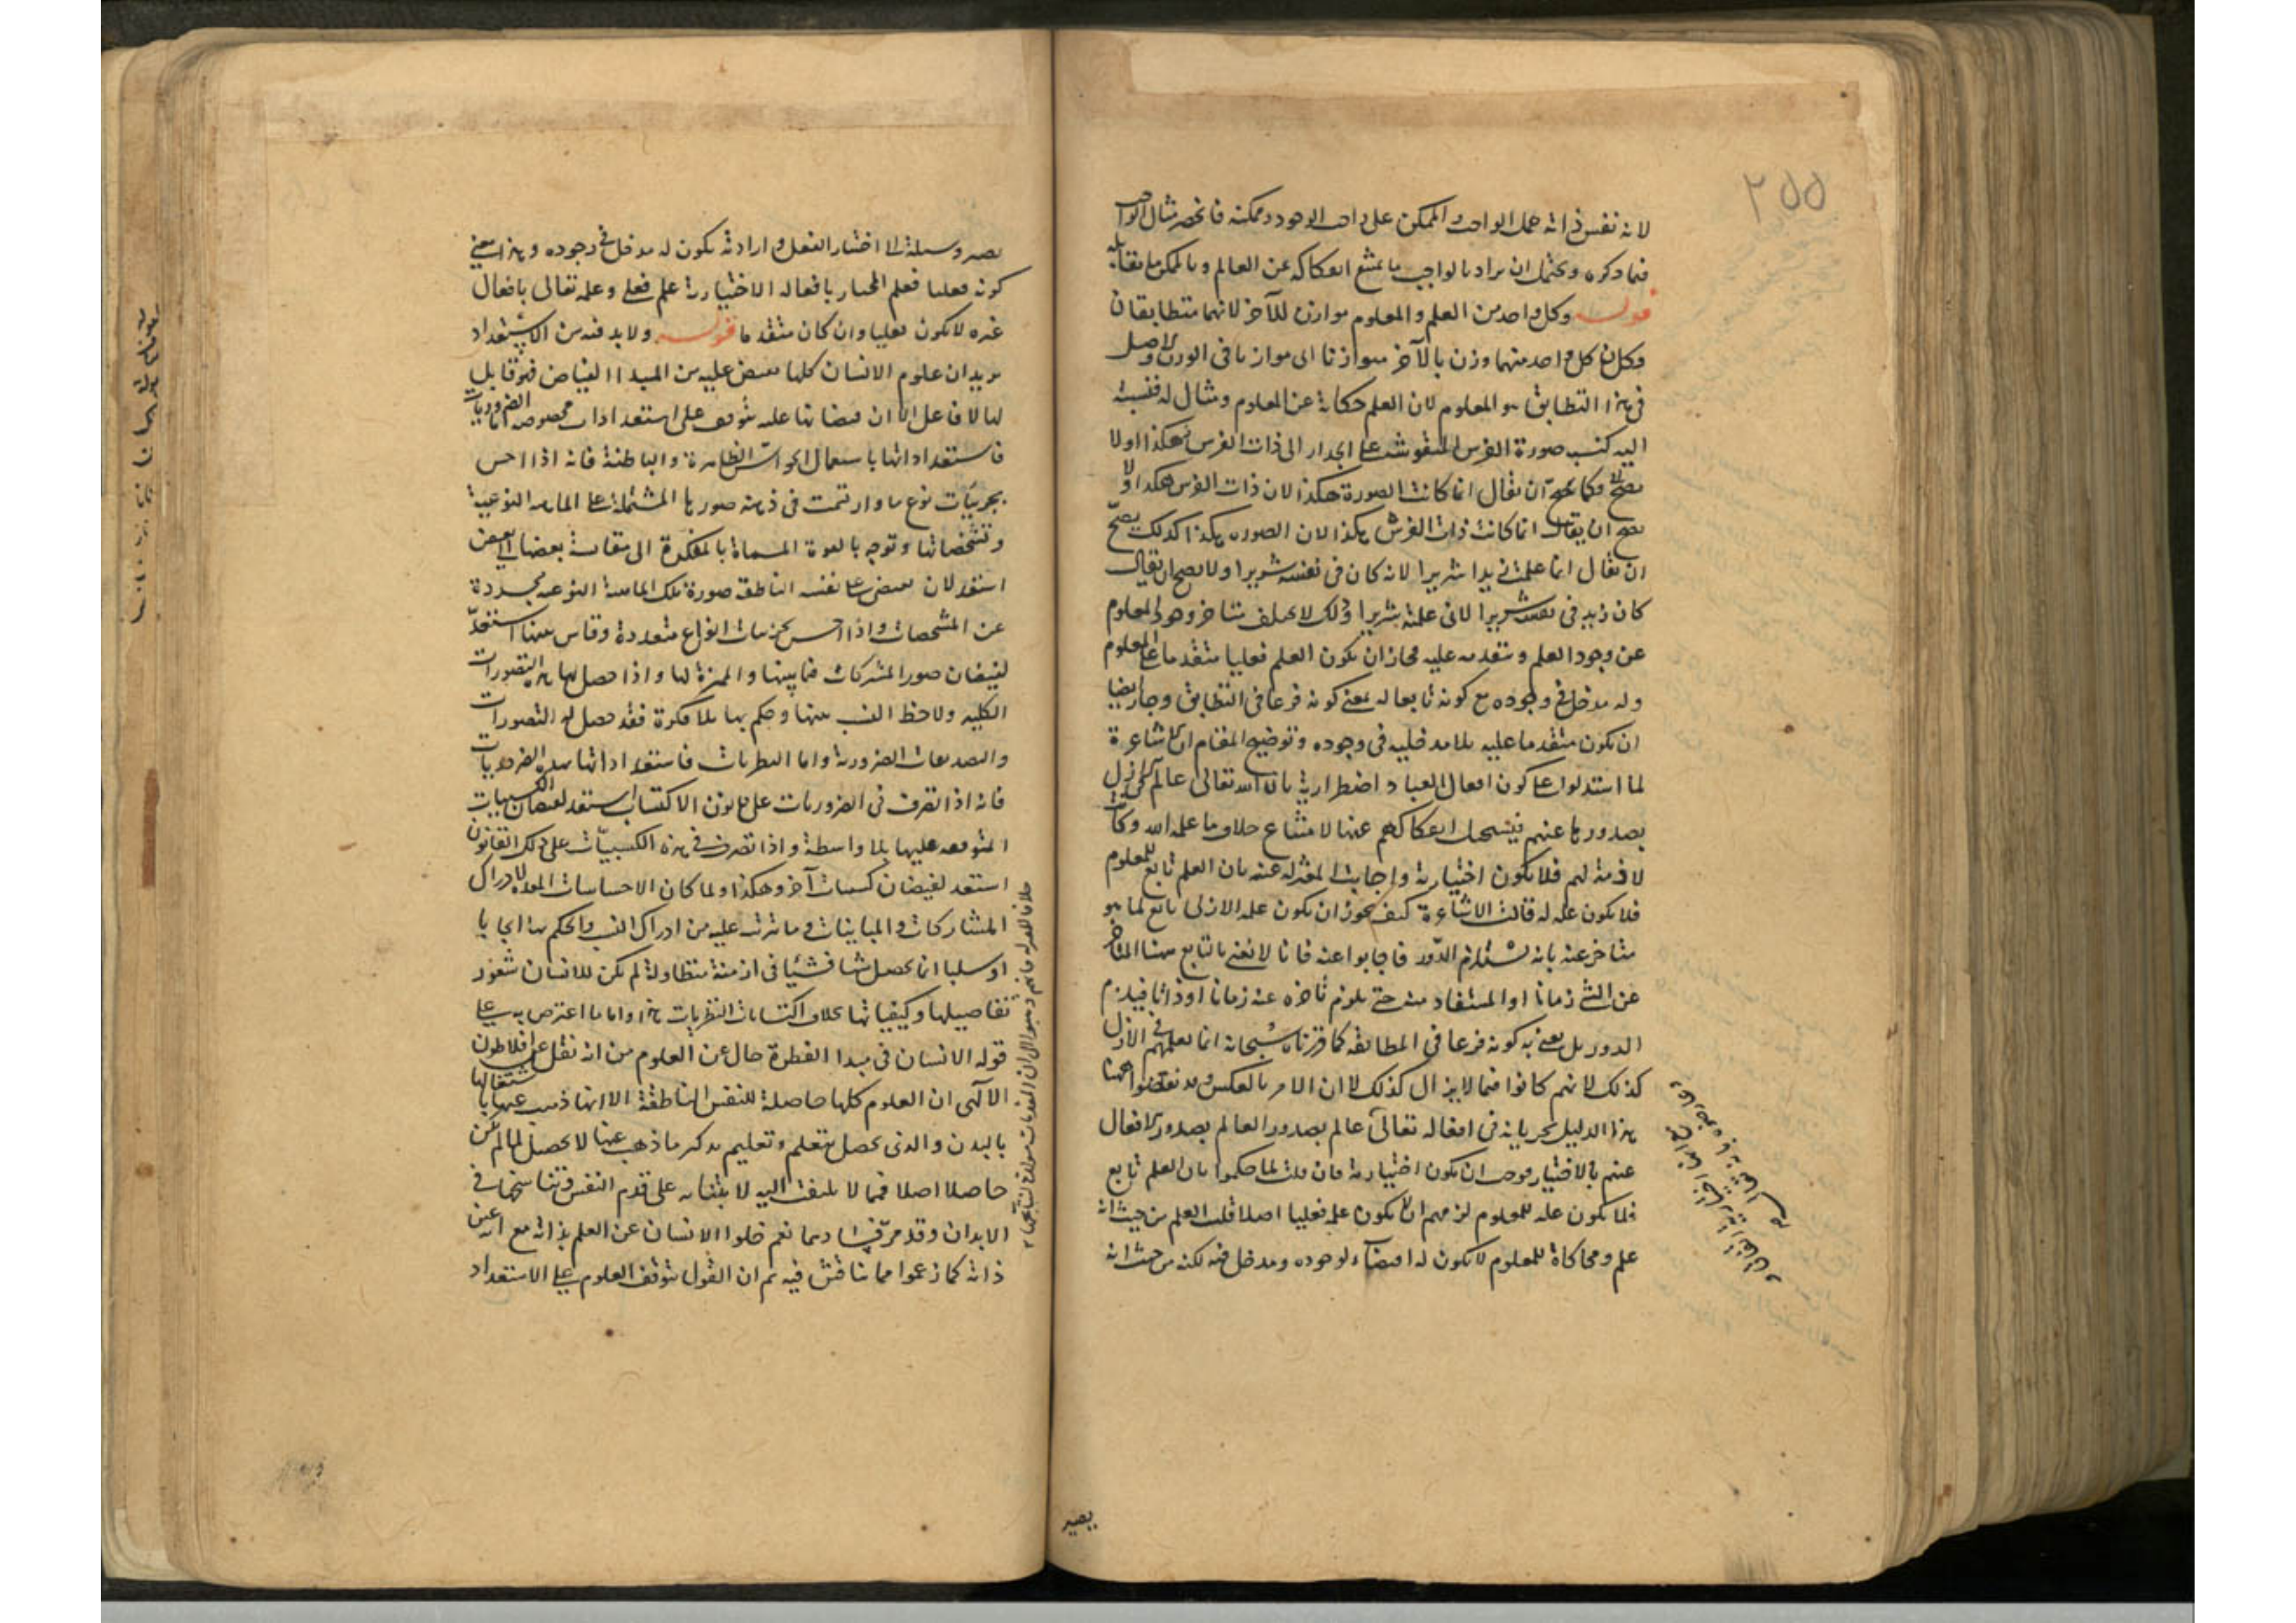 ٢٥٥
لانه نفس ذاته حمل الواجب والممكن على واجب الوجود وممكنه فانحصر مثال الواجب
فيما ذكره ويحتمل ان يراد بالواجب ما يمتنع انفكاكه عن العالم وبالممكن ما يقابله
قوله وكل واحد من العلم والمعلوم موازن للآخر لانهما متطابقان
فكان كل واحد منهما وزن بالآخر فتوازنا الى موازنا فى الوزن والاصل
فى هذا التطابق هو المعلوم لان العلم حكاية عن المعلوم ومثال له فنسبته
اليه كنسبة صورة الفرس المنقوشة على الجدار الى ذات الفرس فهكذا اولا
يصح وكما يصح ان يقال انما كانت الصورة هكذا لان ذات الفرس هكذا ولا
يصح ان يقال انما كانت ذات الفرس هكذا لان الصورة هكذا كذلك يصح
ان يقال انما علمت زيدا شريرا لانه كان فى نفسه شريرا ولا يصح ان يقال
كان زيد فى نفسه شريرا لانى علمته شريرا وذلك لا يختلف بتأخر وجود المعلوم
عن وجود العلم وتقدمه عليه فجاز ان يكون العلم فعليا متقدما على المعلوم
وله مدخل فى وجوده مع كونه تابعا له بمعنى كونه فرعا فى التطابق وجاز ايضا
ان يكون متقدما عليه بلا مدخلية فى وجوده وتوضيح المقام ان الاشاعرة
لما استدلوا على كون افعال العباد اضطرارية بان الله تعالى عالم فى الازل
بصدورها عنهم فيستحيل انفكاكهم عنها لامتناع خلاف ما علمه الله وكانت
لازمة لهم فلا يكون اختيارية واجابت المعتزلة عنه بان العلم تابع للمعلوم
فلا يكون علة له قالت الاشاعرة كيف يجوز ان يكون علمه الازلى تابعا لما هو
متأخر عنه بانه يستلزم الدور فاجابوا عنه فانا لا نعنى بالتابع هنا المتأخر
عن الشئ زمانا او المستفاد منه حتى يلزم تأخره عنه زمانا او ذاتا فيلزم
الدور بل نعنى به كونه فرعا فى المطابقة كما قررناه سبحانه انما يعلمهم فى الازل
كذلك لانهم كانوا فيما لا يزال كذلك لا ان الامر بالعكس وقد نقضوا
هذا الدليل بجريانه فى افعاله تعالى عالم بصدور العالم بصدور الافعال
عنهم بالاختيار فوجب ان يكون اختيارية فان قلت لما حكموا بان العلم تابع
فلا يكون علة للمعلوم لزمهم ان لا يكون علم فعليا اصلا قلت العلم من حيث انه
علم ومحاكاة للمعلوم لا يكون له اقتضاء لوجوده ومدخل فيه لكنه من حيث انه
يصير
يصير وسيلة الى اختيار الفعل وارادته يكون له مدخل فى وجوده وهذا معنى
كونه فعليا فعلم المختار بافعاله الاختيارية علم فعلى وعلمه تعالى بافعال
غيره لا يكون فعليا وان كان متقدما قوله ولا بد فيه من الاستعداد
يريد ان علوم الانسان كلها تفيض عليه من المبدأ الفياض فهو قابل
لها لا فاعل الا ان فيضانها عليه يتوقف على استعدادات مخصوصة اما الضروريات
فاستعداداتها باستعمال الحواس الظاهرة والباطنة فانه اذا احس
بجزئيات نوع ما وارتسمت فى ذهنه صورها المشتملة على الماهية النوعية
وتشخصاتها وتوجه بالقوة المسماة بالمفكرة الى مقايسة بعضها الى بعض
استعد لان تفيض على نفسه الناطقة صورة تلك الماهية النوعية مجردة
عن المشخصات واذا احس بجزئيات انواع متعددة وقاس بينها استعد
لفيضان صور المشتركات فيما بينها والمميزة لها واذا حصل لها هذه التصورات
الكلية ولاحظ النسب بينها وحكم بها بلا فكرة فقد حصل له التصورات
والتصديقات الضرورية واما النظريات فاستعداداتها بهذه الضروريات
فانه اذا تصرف فى الضروريات على قانون الاكتساب استعد لفيضان الكسبيات
المتوقفة عليها بلا واسطة واذا تصرف فى هذه الكسبيات على ذلك القانون
استعد لفيضان كسبيات آخر وهكذا ولما كان الاحساسات المعدة لادراك
المشاركات والمباينات وما يترتب عليه من ادراك النسب والحكم بها ايجابا
او سلبا انما يحصل شيئا فشيئا فى ازمنة متطاولة لم يكن للانسان شعور
بتفاصيلها وكيفياتها بخلاف اكتسابات النظريات هذا واما ما اعترض به على
قوله الانسان فى مبدأ الفطرة خال عن العلوم من انه نقل عن افلاطون
الآلهى ان العلوم كلها حاصلة للنفس الناطقة الا انها ذهب عنها باشتغالها
بالبدن والذى يحصل بتعلم وتعليم يذكر ما ذهب عنها لا يحصل لما لم يكن
حاصلا اصلا فمما لا يلتفت اليه لابتنائه على قدم النفس وتناسخها فى
الابدان وقد مر فسادهما نعم خلو الانسان عن العلم بذاته مع انه عين
ذاته كما زعموا مما يناقش فيه ثم ان القول بتوقف العلوم على الاستعداد